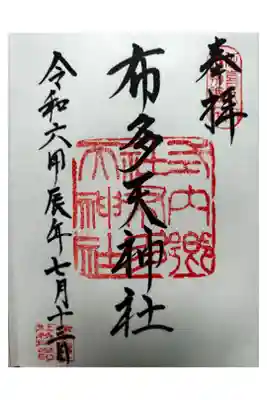 奉拝
布多天神社
令和六甲辰年七月十三日